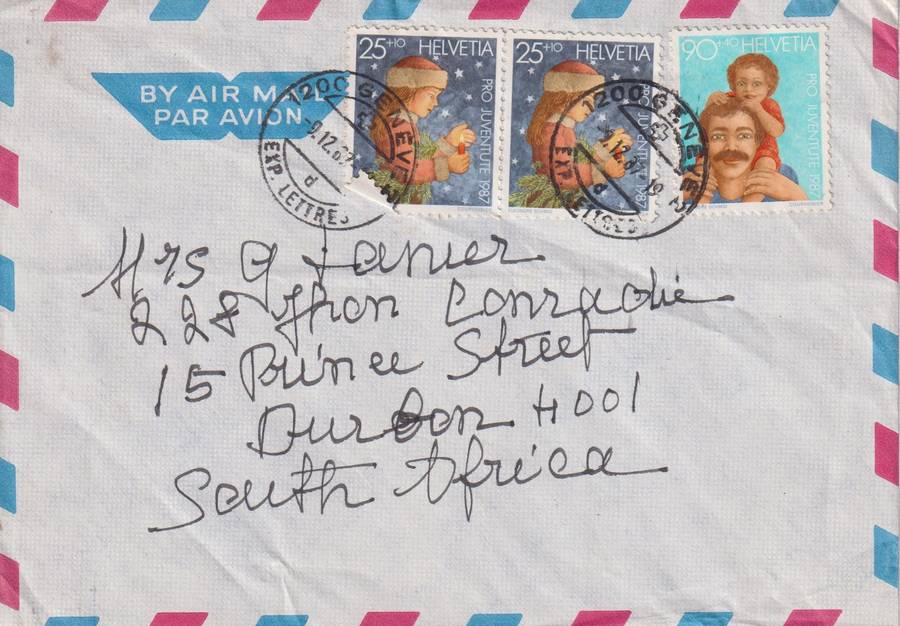 BY AIR MAIL
PAR AVION
25+10 HELVETIA
PRO JUVENTUTE 1987
25+10 HELVETIA
PRO JUVENTUTE 1987
90+40 HELVETIA
PRO JUVENTUTE 1987
1200 GENÈVE
EXP. LETTRES
1200 GENÈVE
EXP. LETTRES
Mrs G
228 Conradie
15 Prince Street
Durban 4001
South Africa